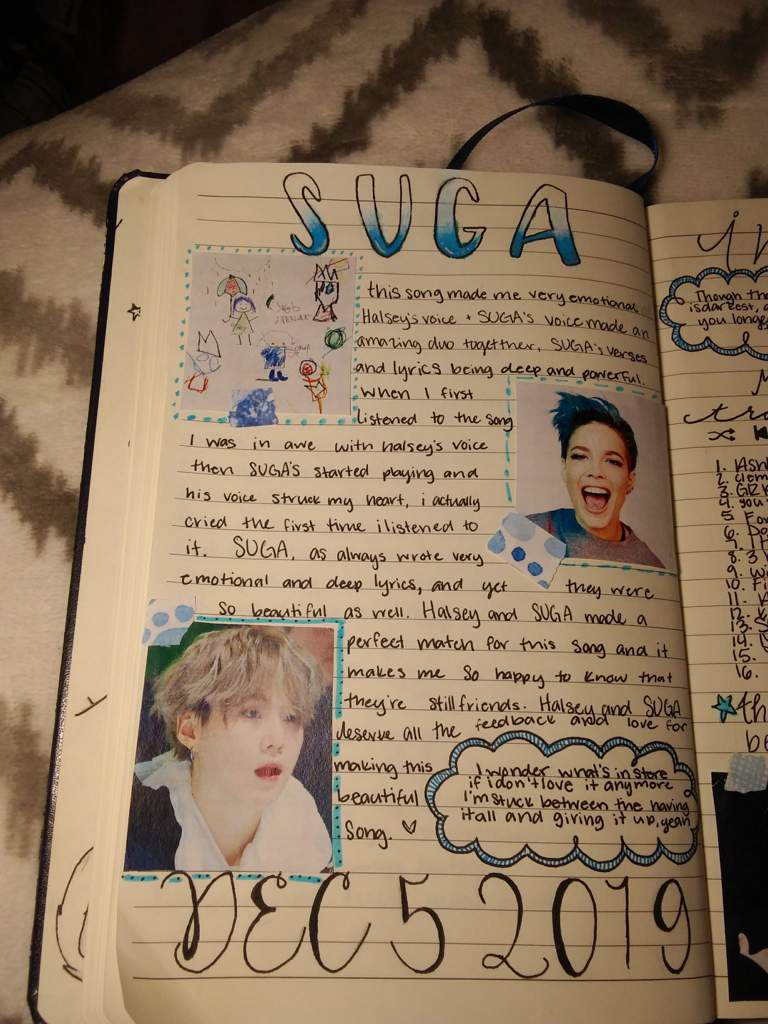 SUGA
this song made me very emotional
Halsey's voice + SUGA's voice made an
amazing duo togetther, SUGA's verses
and lyrics being deep and powerful.
When I first
listened to the song
I was in awe with halsey's voice
then SUGA's started playing and
his voice struck my heart, i actually
cried the first time i listened to
it. SUGA, as always wrote very
emotional and deep lyrics, and yet they were
so beautiful as well. Halsey and SUGA made a
perfect match for this song and it
makes me so happy to know that
they're still friends. Halsey and SUGA
deserve all the feedback and love for
making this
beautiful
song.
I wonder what's in store
if i don't love it anymore
I'm stuck between the having
it all and giving it up, yeah
DEC 5 2019
Though the
is darkest, a
you longe
1.
2.
3.
4. you
5. For
6.
7.
8. 3
9.
10. Fi
11.
12.
13.
14.
15.
16.
th
be